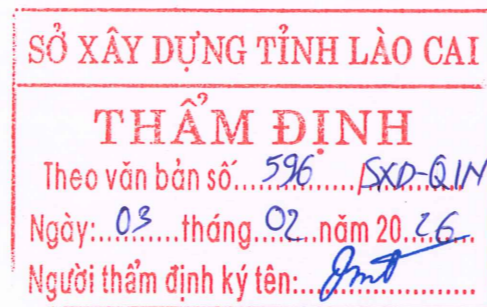 SỞ XÂY DỰNG TỈNH LÀO CAI
THẨM ĐỊNH
Theo văn bản số....596......../SXD-QLN
Ngày:...03.....tháng..02..năm 20.26.
Người thẩm định ký tên:...................